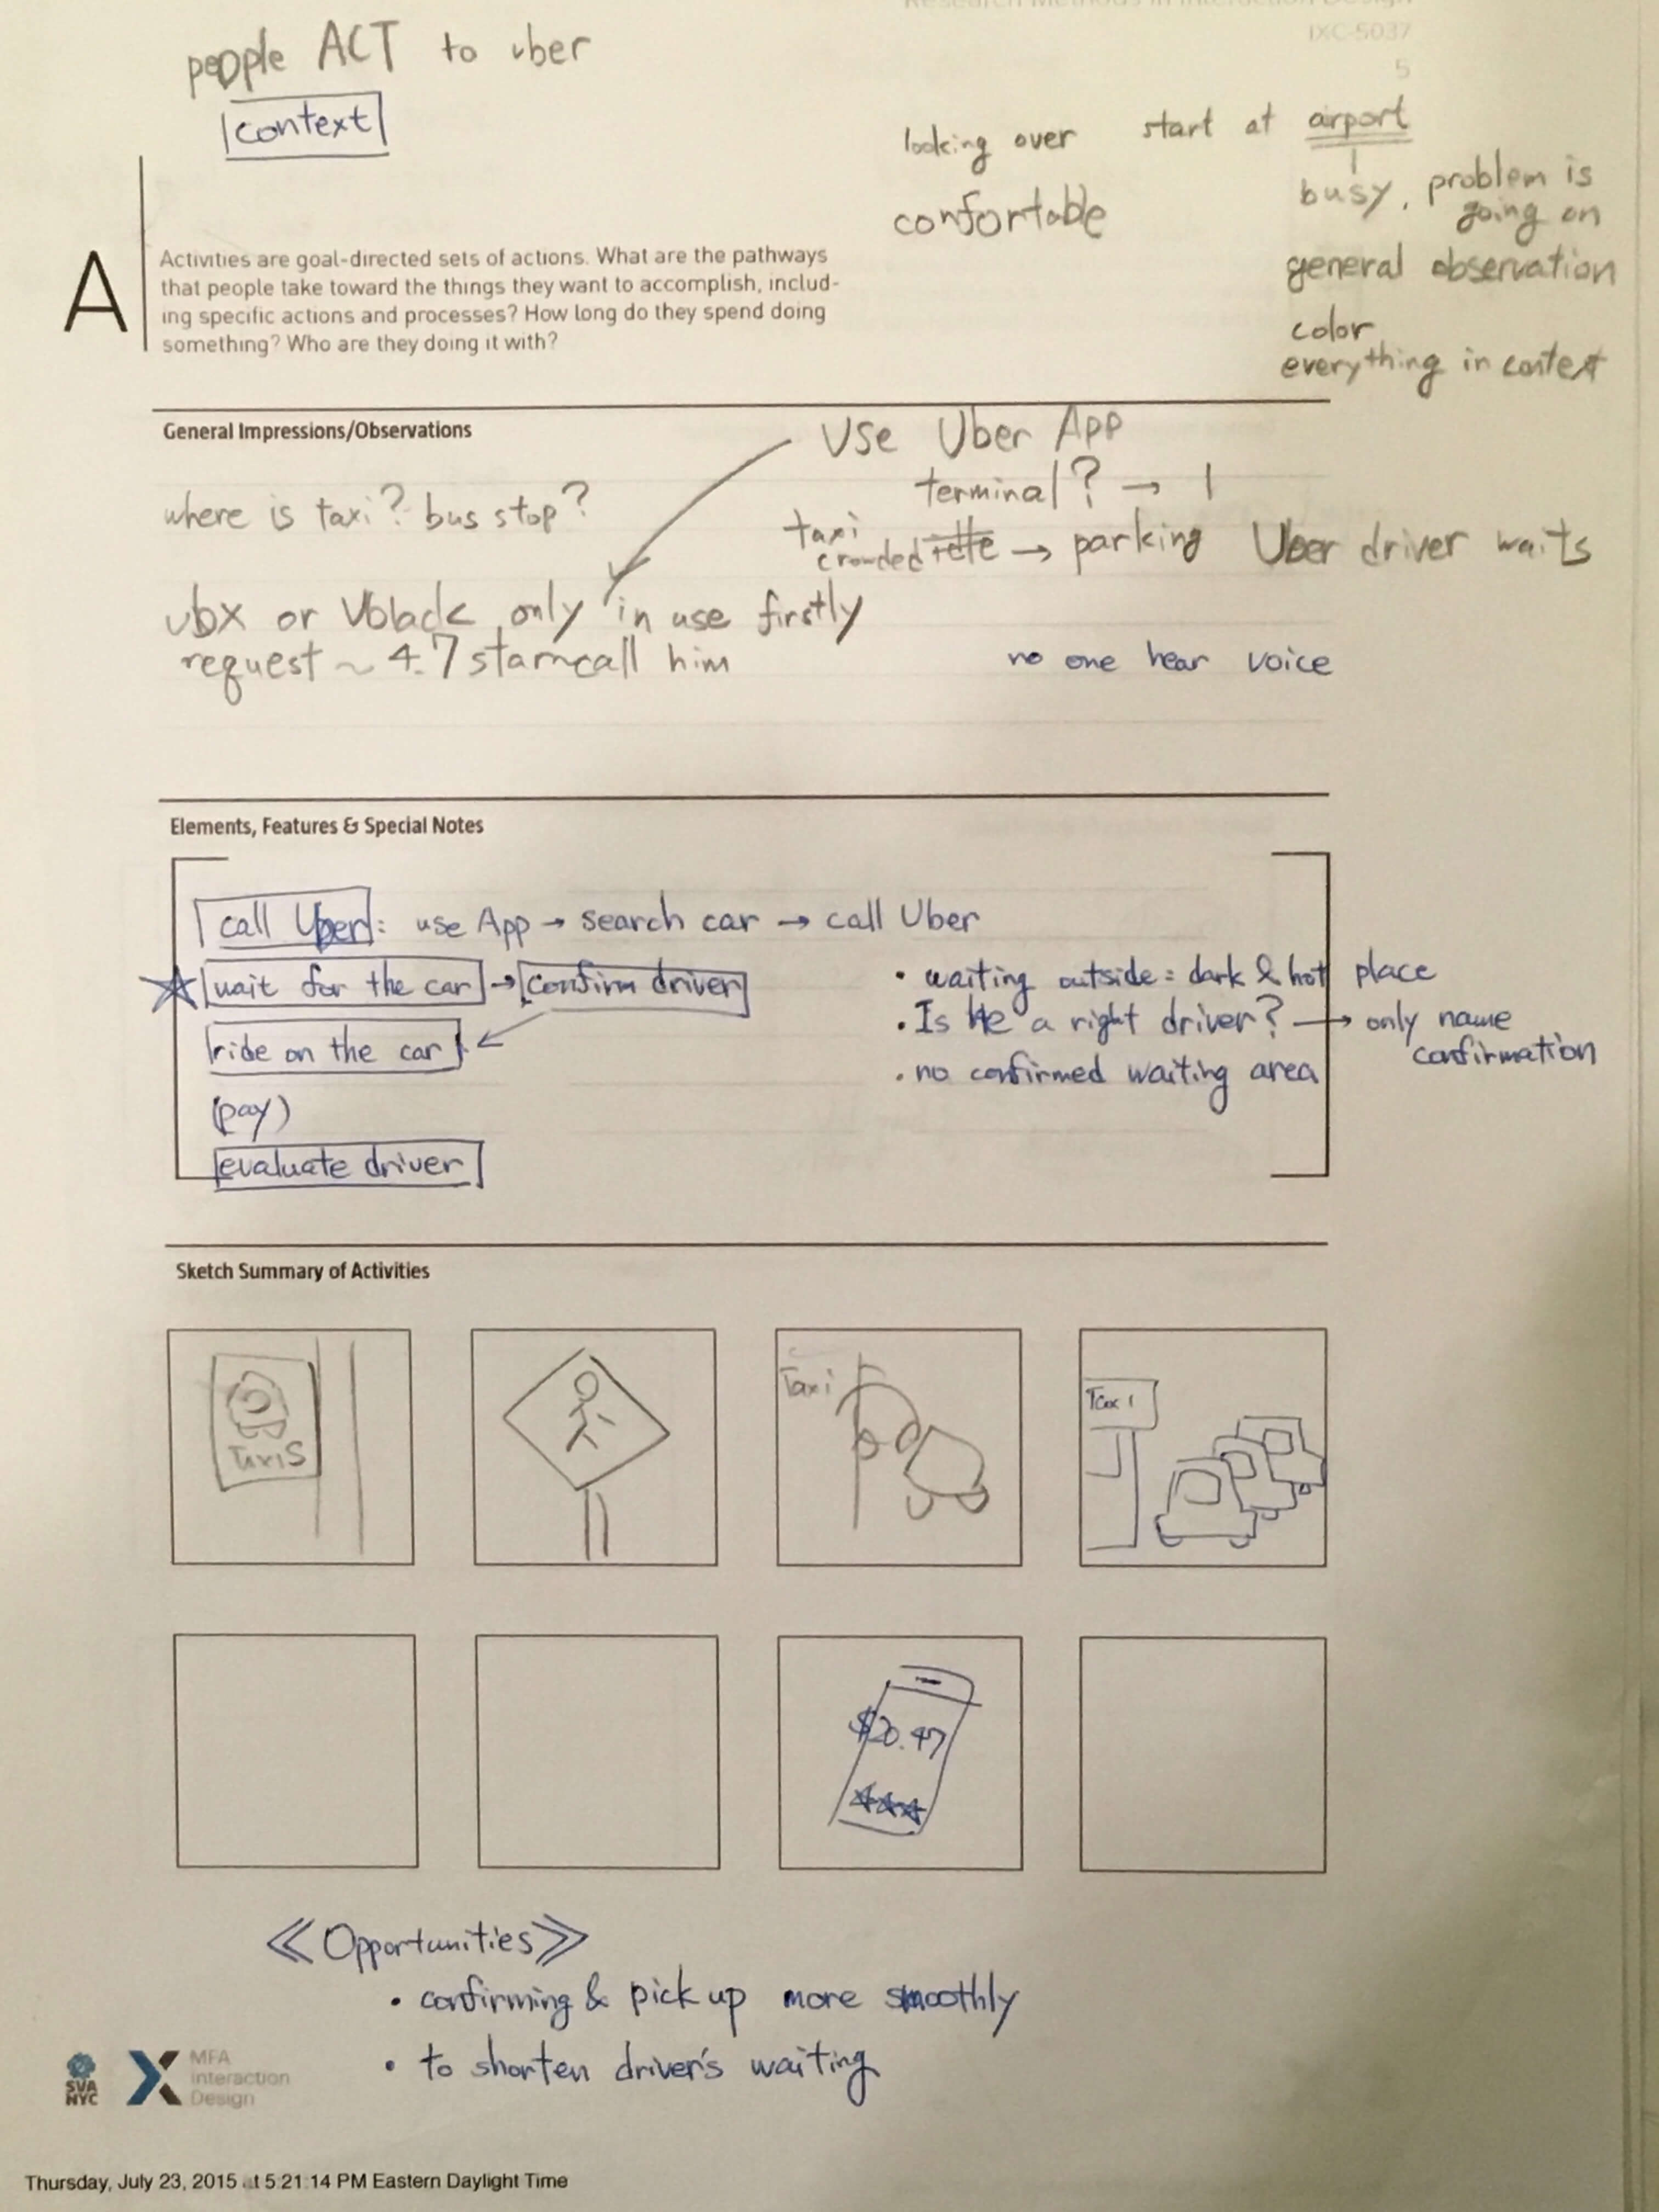 Research Methods in Interaction Design
IXC-5037
5
people ACT to uber
context
looking over
confortable
start at airport
busy, problem is
going on
general observation
color
everything in context
A
Activities are goal-directed sets of actions. What are the pathways
that people take toward the things they want to accomplish, includ-
ing specific actions and processes? How long do they spend doing
something? Who are they doing it with?
General Impressions/Observations
Use Uber App
terminal? → 1
where is taxi? bus stop?
taxi
crowded → parking Uber driver waits
ubx or Vblack only in use firstly
request ~ 4.7 call him
no one hear voice
Elements, Features & Special Notes
call Uber: use App → search car → call Uber
wait for the car → confirm driver
ride on the car
(pay)
evaluate driver
• waiting outside = dark & hot place
• Is He a right driver? → only name
confirmation
• no confirmed waiting area
Sketch Summary of Activities
TaxiS
Taxi
Taxi
$20.47
≪Opportunities≫
• confirming & pick up more smoothly
• to shorten driver's waiting
SVA
NYC
MFA
Interaction
Design
Thursday, July 23, 2015 at 5:21:14 PM Eastern Daylight Time